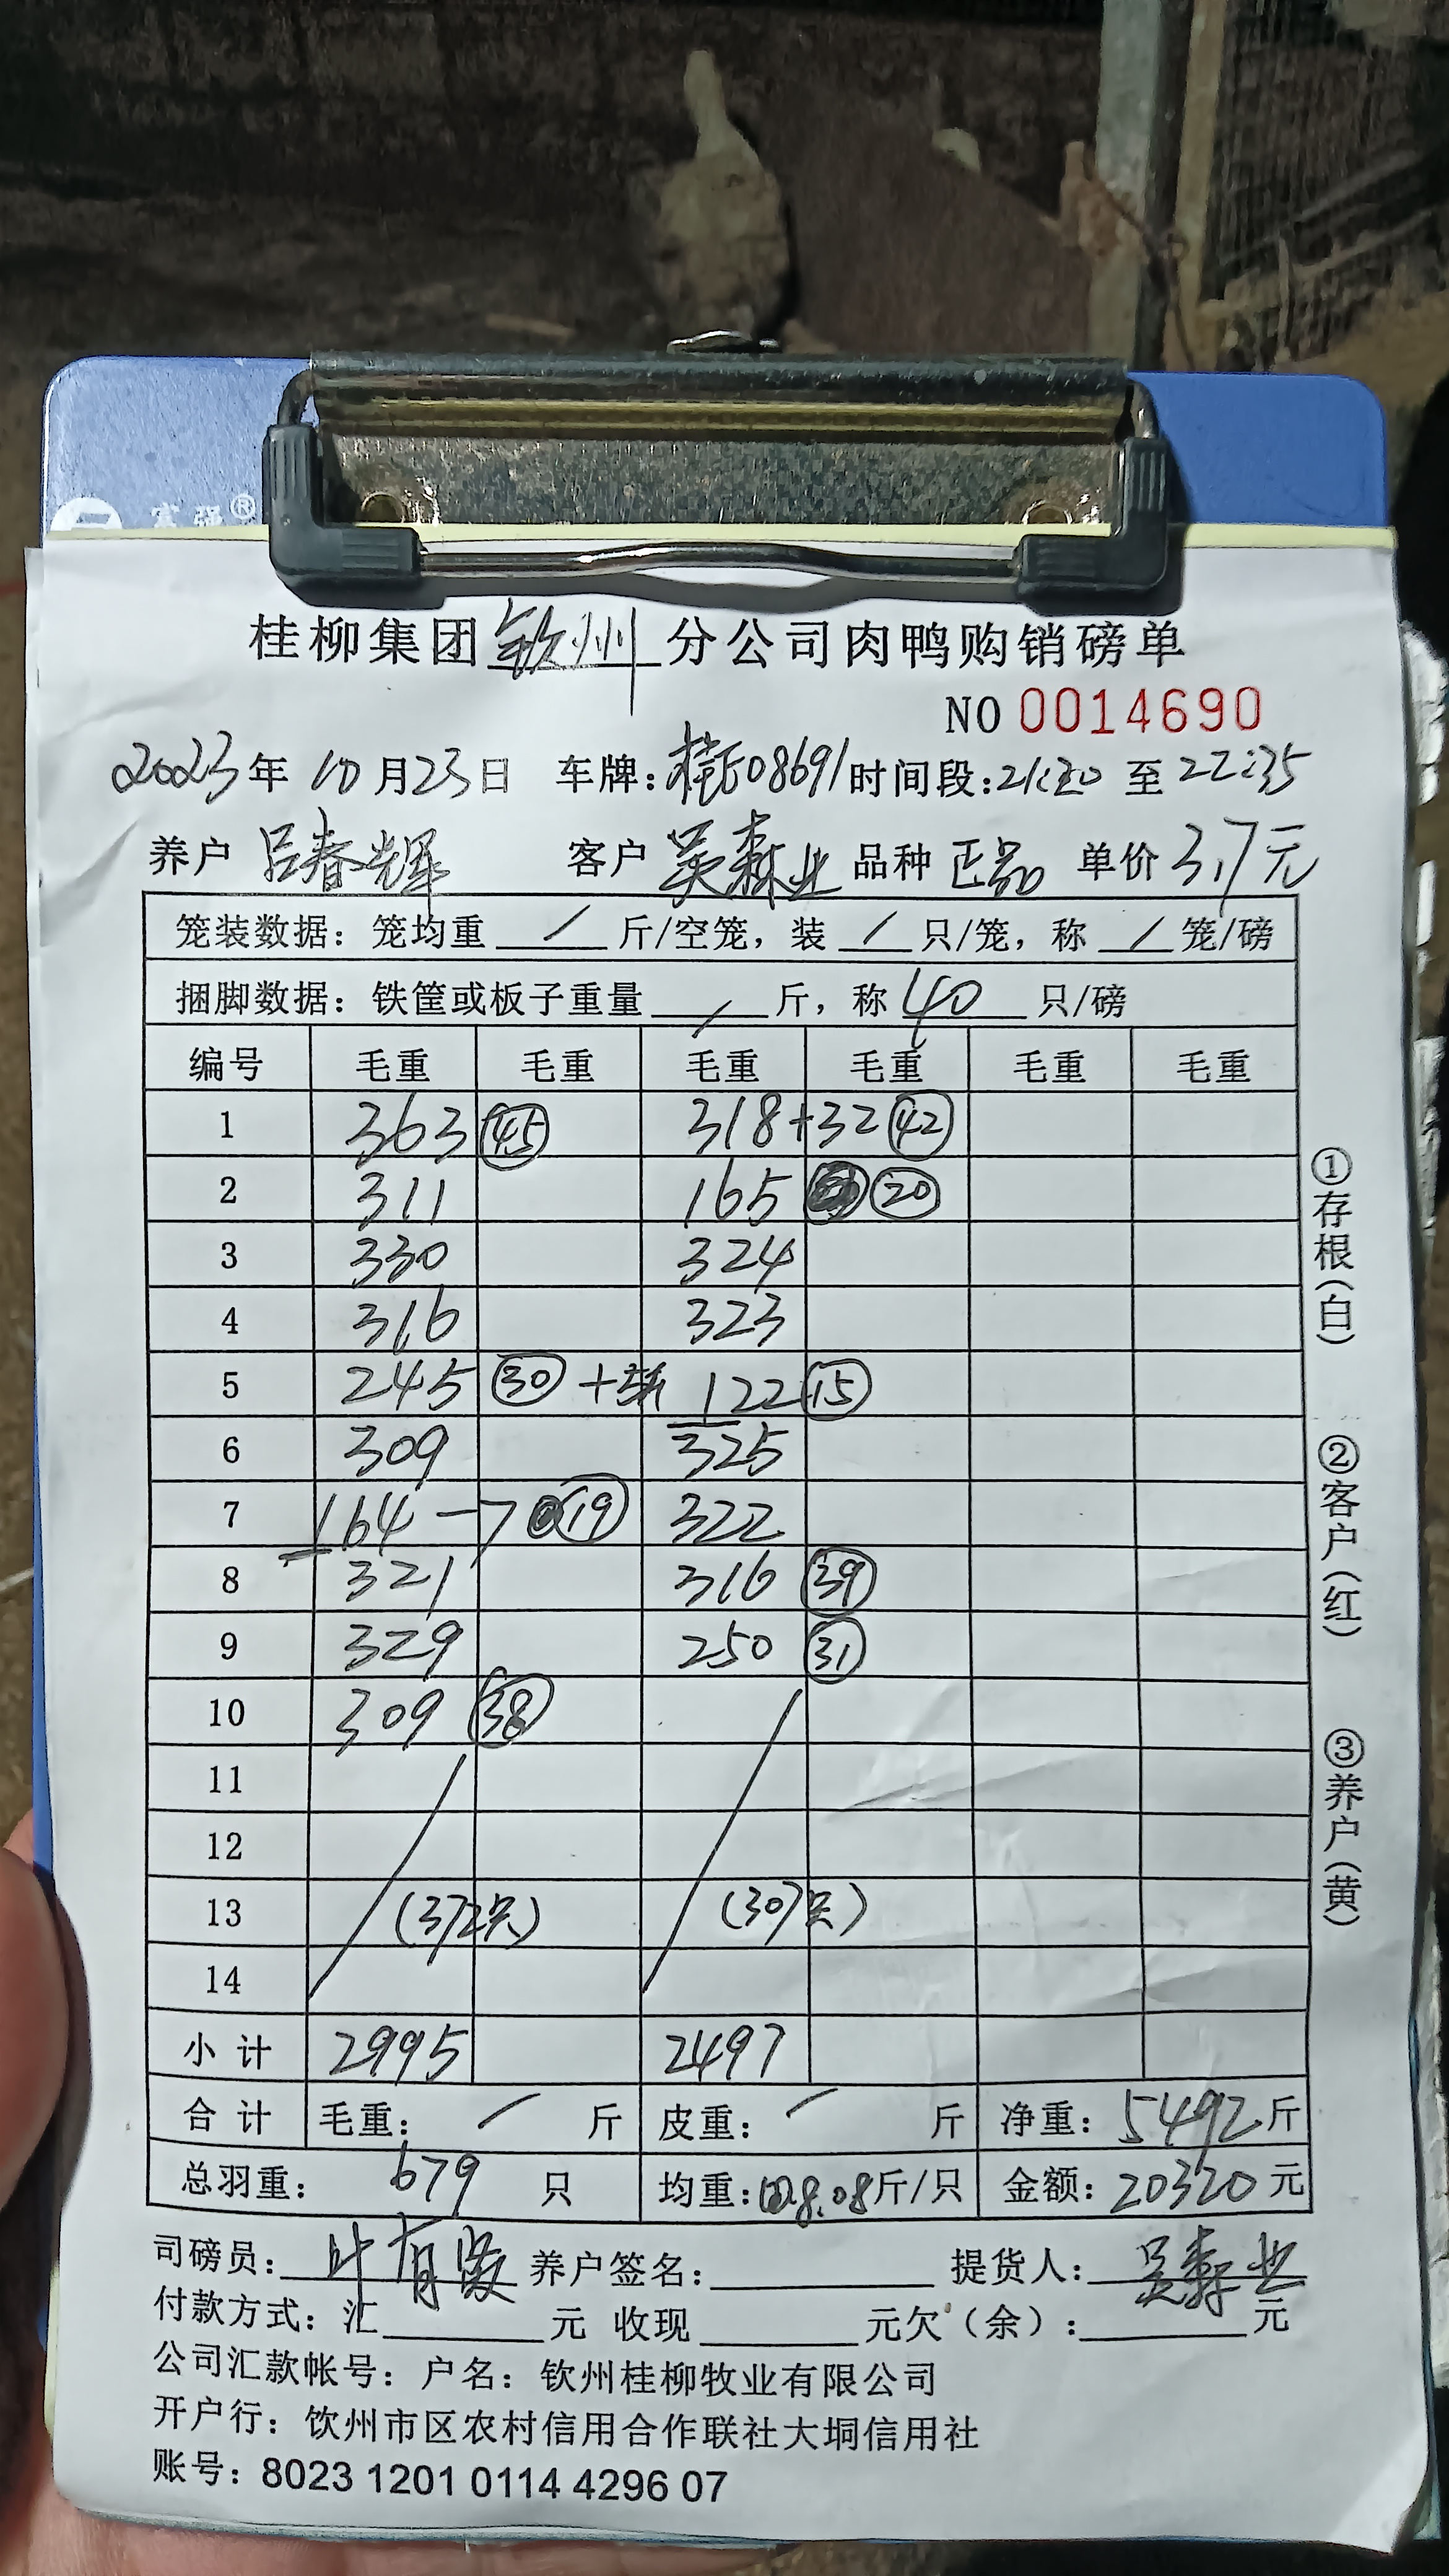 富强®
桂柳集团钦州分公司肉鸭购销磅单
NO 0014690
2023年10月23日 车牌:桂E08691时间段:21:20至22:35
养户 吕春辉 客户 吴森业 品种 正品 单价 3.7元
笼装数据:笼均重 / 斤/空笼,装 / 只/笼,称 / 笼/磅
捆脚数据:铁筐或板子重量 / 斤,称 40 只/磅
编号 毛重 毛重 毛重 毛重 毛重 毛重
1 363 (45) 318+32 (42)
2 311 165 (20)
3 330 324
4 316 323
5 245 (30) + 122 (15)
6 309 325
7 164-7 (19) 322
8 321 316 (39)
9 329 250 (31)
10 309 (38)
11
12
13 (372只) (307只)
14
小计 2995 2497
合计 毛重: / 斤 皮重: / 斤 净重:5492斤
总羽重: 679 只 均重:8.08斤/只 金额:20320元
司磅员:叶有 养户签名: 提货人:吴森业
付款方式:汇 元 收现 元欠(余): 元
公司汇款帐号:户名:钦州桂柳牧业有限公司
开户行:钦州市区农村信用合作联社大垌信用社
账号:8023 1201 0114 4296 07
①存根(白)
②客户(红)
③养户(黄)